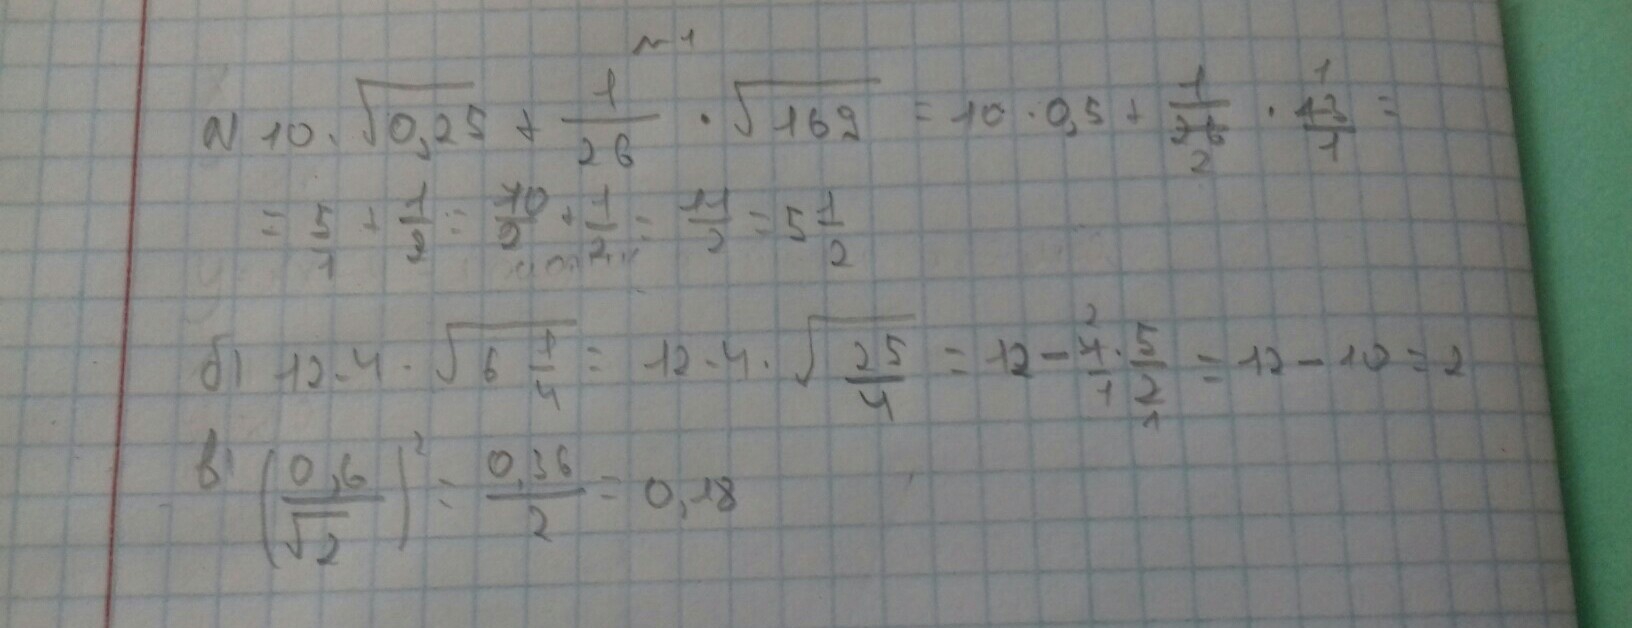 №1
а) 10 · √0,25 + 1/26 · √169 = 10 · 0,5 + 1/26 2 · 1 13/1 =
= 5/1 + 1/2 = 10/2 + 1/2 = 11/2 = 5 1/2
б) 12 - 4 · √6 1/4 = 12 - 4 · √25/4 = 12 - 2 4/1 · 5/2 1 = 12 - 10 = 2
в) (0,6/√2)² = 0,36/2 = 0,18